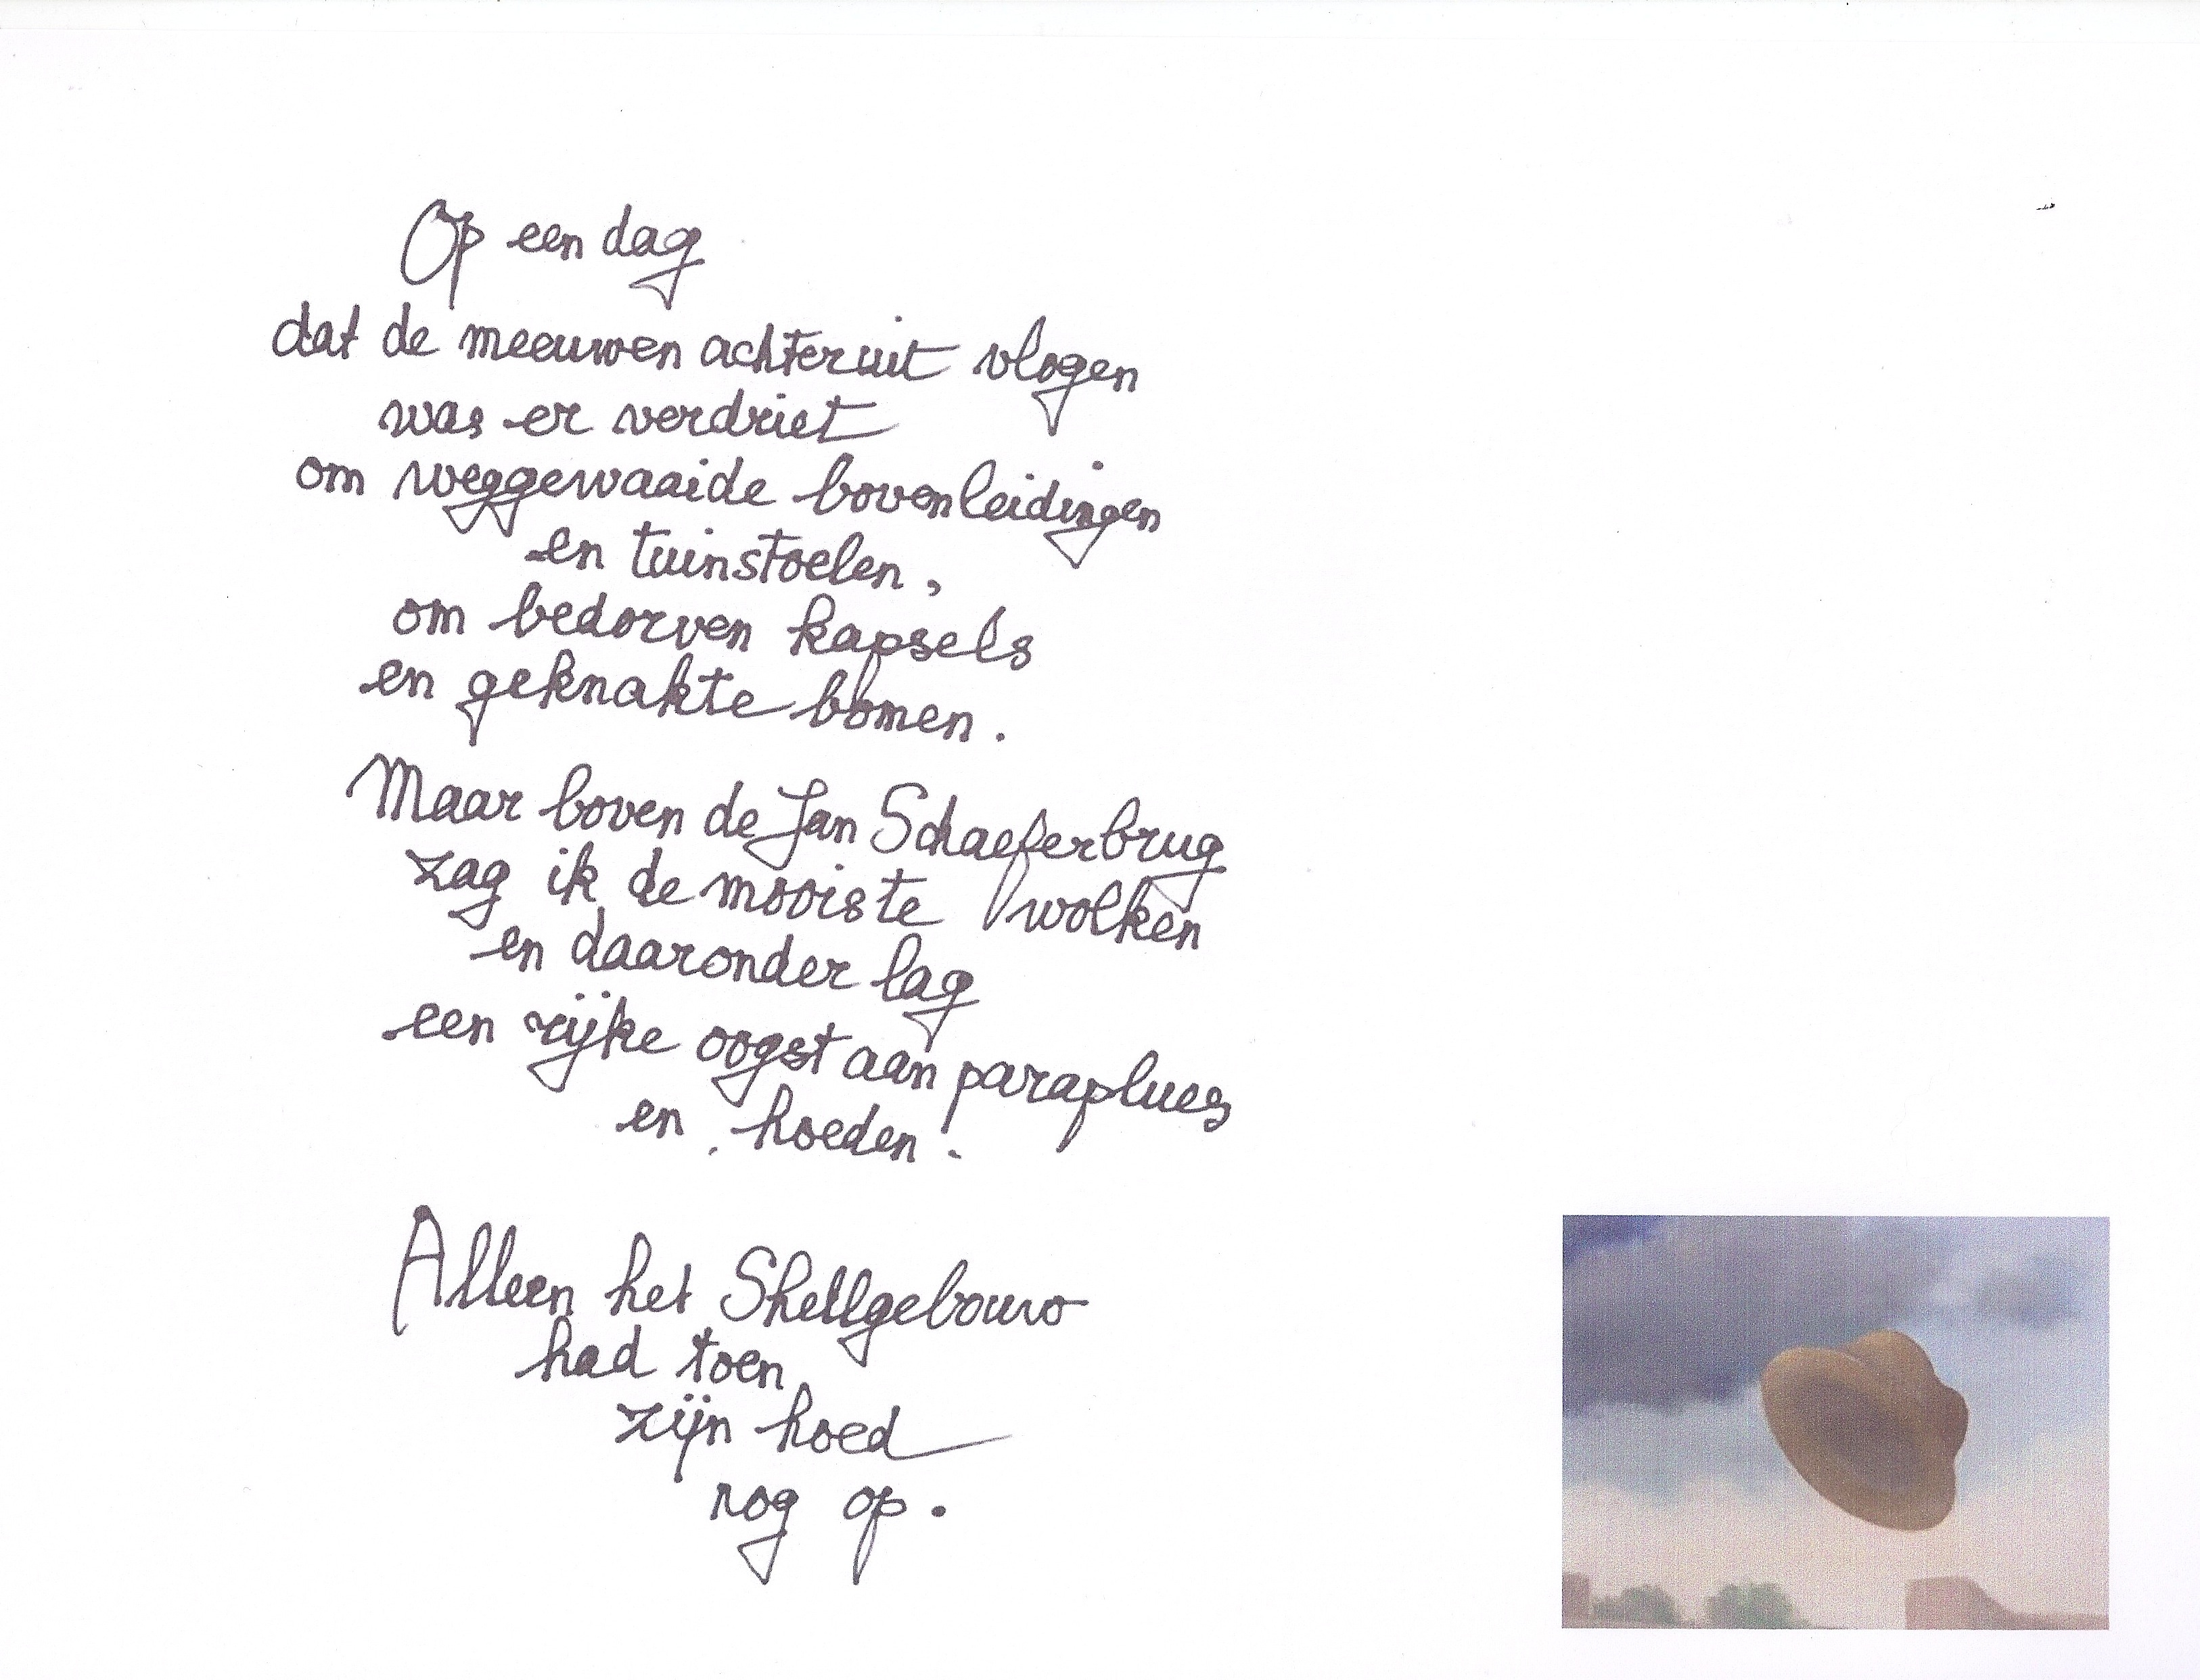 Op een dag
dat de meeuwen achteruit vlogen
was er verdriet
om weggewaaide bovenleidingen
en tuinstoelen,
om bedorven kapsels
en geknakte bomen.
Maar boven de Jan Schaeferbrug
zag ik de mooiste wolken
en daaronder lag
een rijke oogst aan paraplues
en hoeden.
Alleen het Shellgebouw
had toen
zijn hoed
nog op.